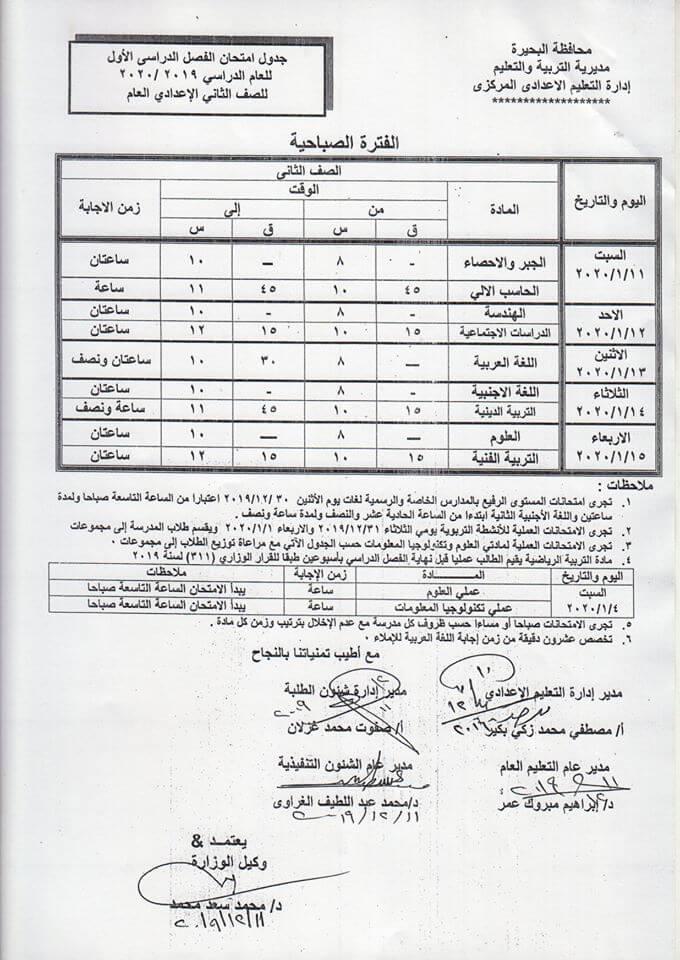 محافظة البحيرة
مديرية التربية والتعليم
إدارة التعليم الاعدادى المركزى
*******************
جدول امتحان الفصل الدراسى الأول
للعام الدراسي ٢٠١٩ / ٢٠٢٠
للصف الثاني الإعدادي العام
الفترة الصباحية
اليوم والتاريخ الصف الثانى
المادة الوقت زمن الاجابة
من إلى
ق س ق س
السبت ٢٠٢٠/١/١١ الجبر والاحصاء - ٨ - ١٠ ساعتان
الحاسب الالي ٤٥ ١٠ ٤٥ ١١ ساعة
الاحد ٢٠٢٠/١/١٢ الهندسة - ٨ - ١٠ ساعتان
الدراسات الاجتماعية ١٥ ١٠ ١٥ ١٢ ساعتان
الاثنين ٢٠٢٠/١/١٣ اللغة العربية - ٨ ٣٠ ١٠ ساعتان ونصف
الثلاثاء ٢٠٢٠/١/١٤ اللغة الاجنبية - ٨ - ١٠ ساعتان
التربية الدينية ١٥ ١٠ ٤٥ ١١ ساعة ونصف
الاربعاء ٢٠٢٠/١/١٥ العلوم - ٨ - ١٠ ساعتان
التربية الفنية ١٥ ١٠ ١٥ ١٢ ساعتان
ملاحظات :
١. تجرى امتحانات المستوى الرفيع بالمدارس الخاصة والرسمية لغات يوم الأثنين ٢٠١٩/١٢/٣٠ اعتبارا من الساعة التاسعة صباحا ولمدة
ساعتين واللغة الأجنبية الثانية ابتدءا من الساعة الحادية عشر والنصف ولمدة ساعة ونصف.
٢. تجرى الامتحانات العملية للأنشطة التربوية يومي الثلاثاء ٢٠١٩/١٢/٣١ والاربعاء ٢٠٢٠/١/١ ويقسم طلاب المدرسة إلى مجموعات
٣. تجرى الامتحانات العملية لمادتي العلوم وتكنولوجيا المعلومات حسب الجدول الآتي مع مراعاة توزيع الطلاب إلى مجموعات .
٤. مادة التربية الرياضية يقيم الطالب عمليا قبل نهاية الفصل الدراسي بأسبوعين طبقا للقرار الوزاري (٣١١) لسنة ٢٠١٩
اليوم والتاريخ المــــــادة زمن الإجابة ملاحظات
السبت ٢٠٢٠/١/٤ عملي العلوم ساعة يبدأ الامتحان الساعة التاسعة صباحا
عملي تكنولوجيا المعلومات ساعة يبدأ الامتحان الساعة التاسعة صباحا
٥. تجرى الامتحانات صباحا أو مساءا حسب ظروف كل مدرسة مع عدم الإخلال بترتيب وزمن كل مادة .
٦. تخصص عشرون دقيقة من زمن إجابة اللغة العربية للإملاء .
مع أطيب تمنياتنا بالنجاح
مدير إدارة التعليم الإعدادي
أ/ مصطفي محمد زكي بكير
مدير إدارة شئون الطلبة
أ/ صفوت محمد غزلان
مدير عام التعليم العام
د/ إبراهيم مبروك عمر
مدير عام الشئون التنفيذية
د/محمد عبد اللطيف الغراوى
٢٠١٩/١٢/١١
يعتمــد &
وكيل الوزارة
د/ محمد سعد محمد
٢٠١٩/١٢/١١